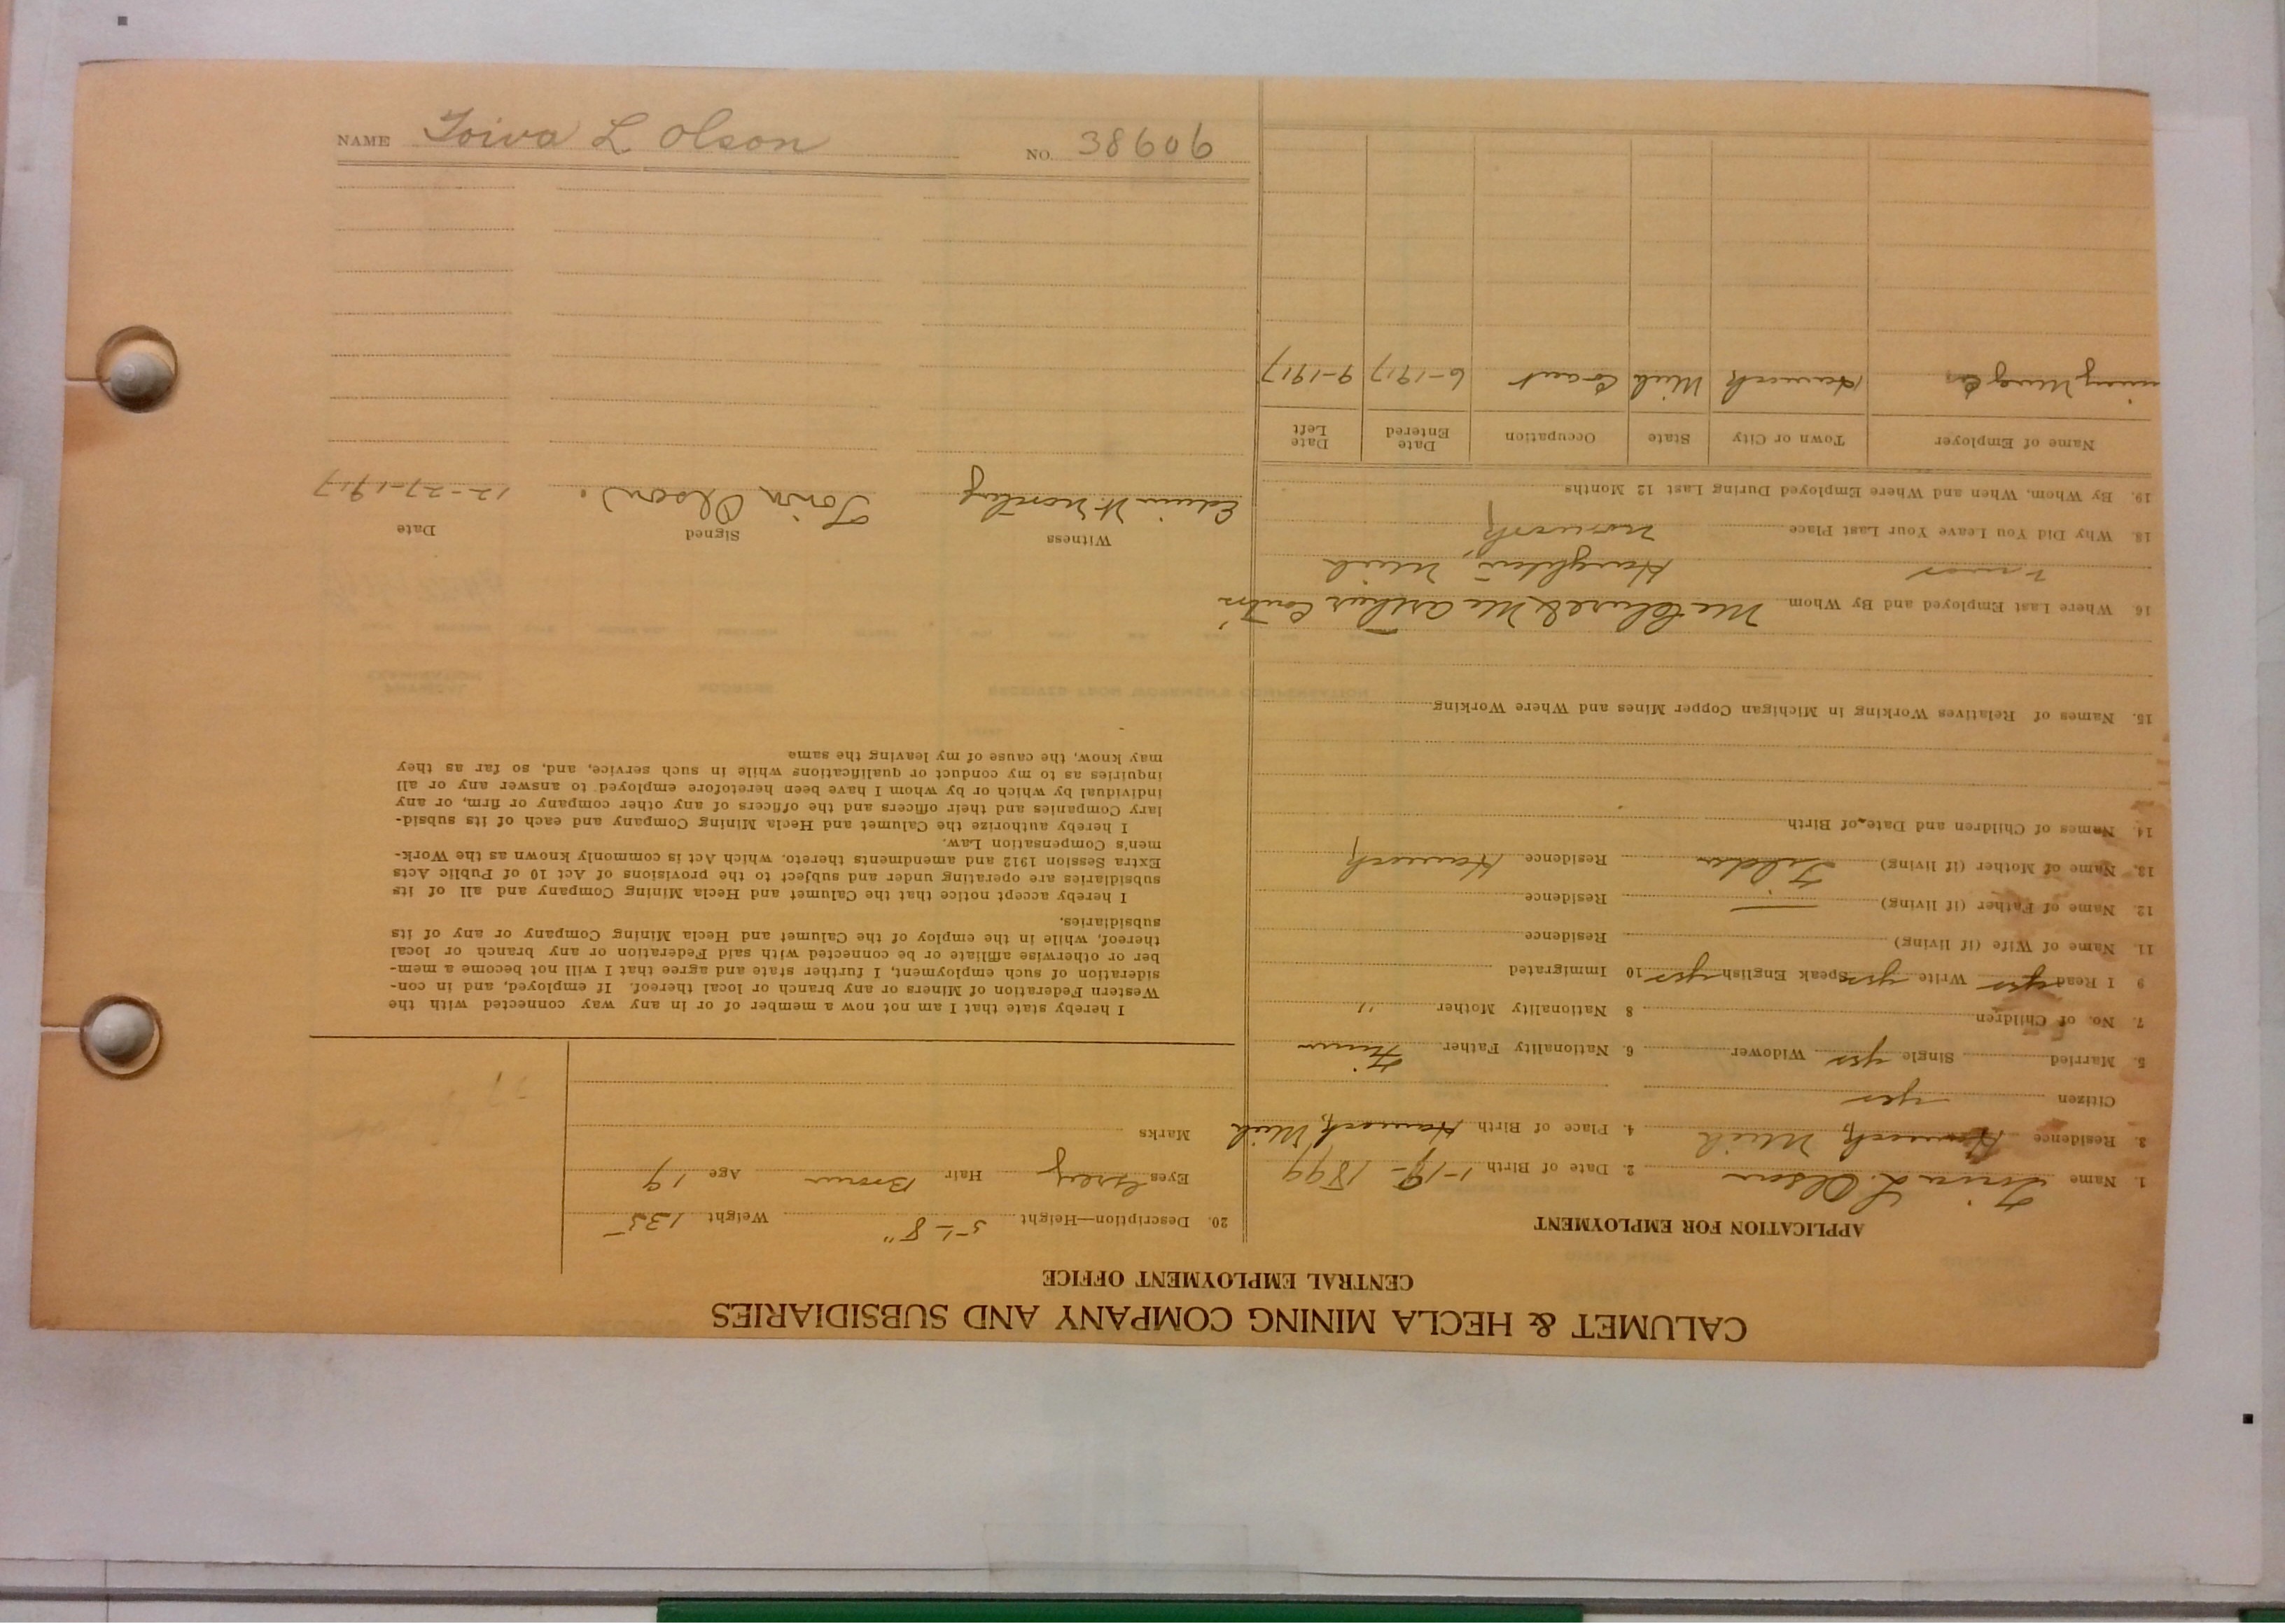 CALUMET & HECLA MINING COMPANY AND SUBSIDIARIES
CENTRAL EMPLOYMENT OFFICE
APPLICATION FOR EMPLOYMENT
1. Name Toiva L. Olson 2. Date of Birth 1-19-1899
3. Residence Hancock, Mich 4. Place of Birth Hancock, Mich
Citizen yes
5. Married Single yes Widower 6. Nationality Father Finn
7. No. of Children 8 Nationality Mother "
9 I Read yes Write yes Speak English yes 10 Immigrated
11. Name of Wife (if living) Residence
12. Name of Father (if living) — Residence
13. Name of Mother (if living) Residence Hancock
14. Names of Children and Date of Birth
15. Names of Relatives Working in Michigan Copper Mines and Where Working
16. Where Last Employed and By Whom McClure & McArthur Contr
Houghton, Mich
18. Why Did You Leave Your Last Place no work
19. By Whom, When and Where Employed During Last 12 Months
Name of Employer Town or City State Occupation Date Entered Date Left
Hancock Mich 6-1917 9-1917
20. Description—Height 5-8" Weight 135
Eyes Grey Hair Brown Age 19
Marks
I hereby state that I am not now a member of or in any way connected with the
Western Federation of Miners or any branch or local thereof. If employed, and in con-
sideration of such employment, I further state and agree that I will not become a mem-
ber or otherwise affiliate or be connected with said Federation or any branch or local
thereof, while in the employ of the Calumet and Hecla Mining Company or any of its
subsidiaries.
I hereby accept notice that the Calumet and Hecla Mining Company and all of its
subsidiaries are operating under and subject to the provisions of Act 10 of Public Acts
Extra Session 1912 and amendments thereto, which Act is commonly known as the Work-
men's Compensation Law.
I hereby authorize the Calumet and Hecla Mining Company and each of its subsid-
iary Companies and their officers and the officers of any other company or firm, or any
individual by which or by whom I have been heretofore employed to answer any or all
inquiries as to my conduct or qualifications while in such service, and, so far as they
may know, the cause of my leaving the same
Witness Signed Date
Edwin W. Toiva Olson. 12-27-1917
NAME Toiva L Olson NO. 38606